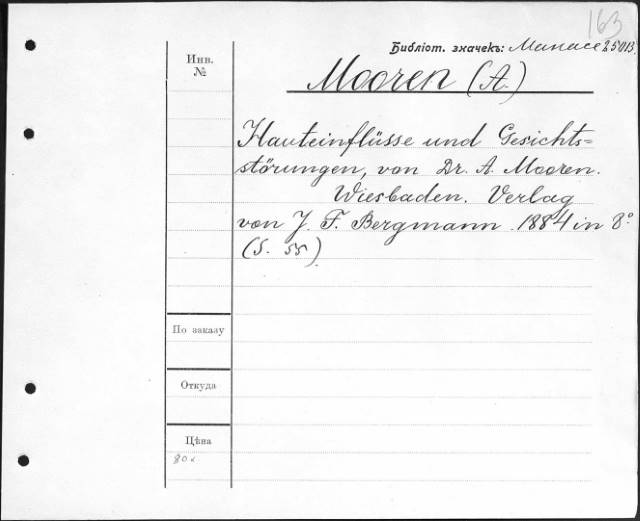 163
Библіот. значекъ: Manacc 25013.
Инв.
№
Mooren (A.)
Hauteinflüsse und Gesichts=
störungen, von Dr. A. Mooren.
Wiesbaden. Verlag
von J. F. Bergmann. 1884 in 8°
(S. 55)
По заказу
Откуда
Цѣна
80 к